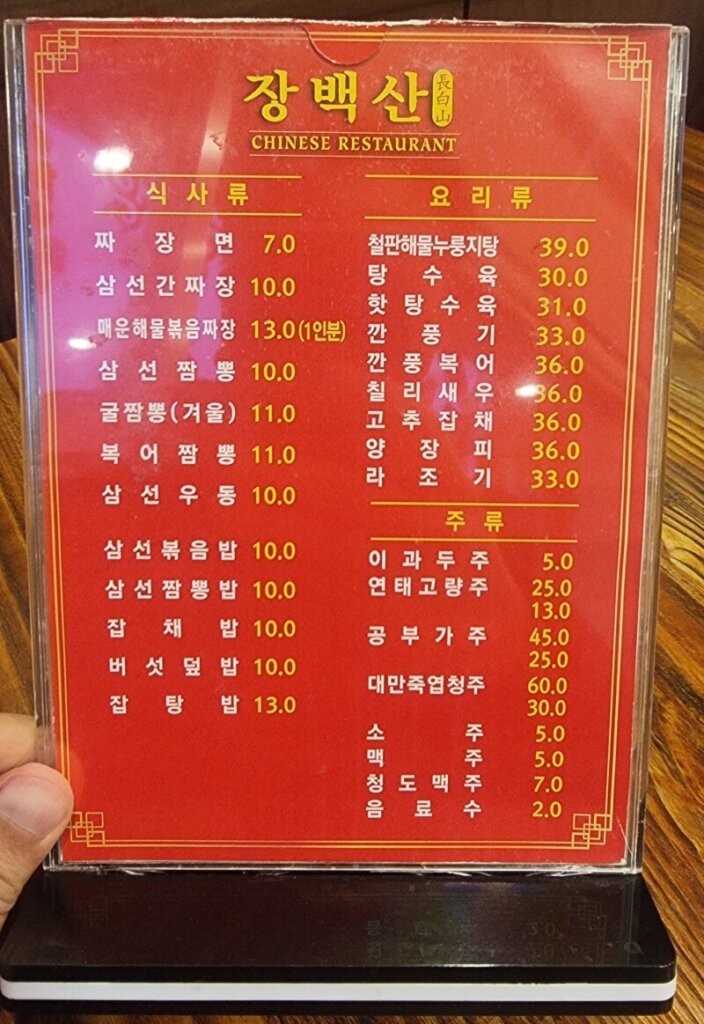 장백산 長白山
CHINESE RESTAURANT
식사류
짜장면 7.0
삼선간짜장 10.0
매운해물볶음짜장 13.0(1인분)
삼선짬뽕 10.0
굴짬뽕(겨울) 11.0
복어짬뽕 11.0
삼선우동 10.0
삼선볶음밥 10.0
삼선짬뽕밥 10.0
잡채밥 10.0
버섯덮밥 10.0
잡탕밥 13.0
요리류
철판해물누룽지탕 39.0
탕수육 30.0
핫탕수육 31.0
깐풍기 33.0
깐풍복어 36.0
칠리새우 36.0
고추잡채 36.0
양장피 36.0
라조기 33.0
주류
이과두주 5.0
연태고량주 25.0
13.0
공부가주 45.0
25.0
대만죽엽청주 60.0
30.0
소주 5.0
맥주 5.0
청도맥주 7.0
음료수 2.0